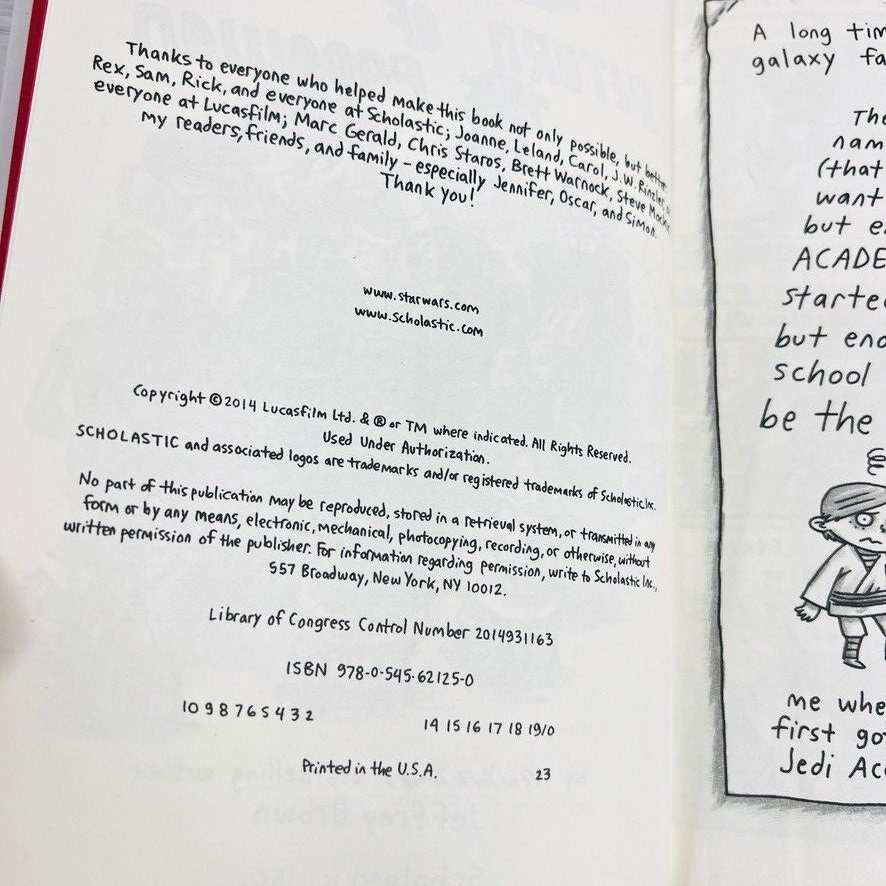 Thanks to everyone who helped make this book not only possible, but better
Rex, Sam, Rick, and everyone at Scholastic; Joanne, Leland, Carol, J.W. Rinzler,
everyone at Lucasfilm; Marc Gerald, Chris Staros, Brett Warnock, Steve
my readers, friends, and family – especially Jennifer, Oscar, and Simon.
Thank you!
www.starwars.com
www.scholastic.com
Copyright ©2014 Lucasfilm Ltd. & ® or TM where indicated. All Rights Reserved.
Used Under Authorization.
SCHOLASTIC and associated logos are trademarks and/or registered trademarks of Scholastic Inc.
No part of this publication may be reproduced, stored in a retrieval system, or transmitted in any
form or by any means, electronic, mechanical, photocopying, recording, or otherwise, without
written permission of the publisher. For information regarding permission, write to Scholastic Inc.,
557 Broadway, New York, NY 10012.
Library of Congress Control Number 2014931163
ISBN 978-0-545-62125-0
10 9 8 7 6 5 4 3 2
14 15 16 17 18 19/0
Printed in the U.S.A.
23
A long tim
galaxy fa
The
nam
(that
want
but e
ACADE
starte
but end
school
be the
me whe
first go
Jedi Ac